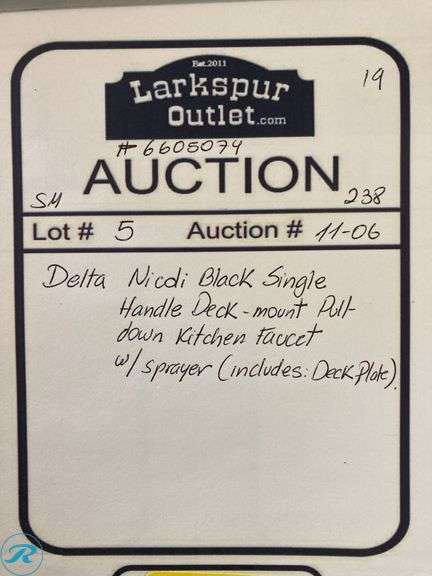 Est. 2011
19
Larkspur
Outlet.com
# 6605074
AUCTION
SM
238
Lot # 5 Auction # 11-06
Delta Nicoli Black Single
Handle Deck-mount Pull-
down Kitchen Faucet
w/ sprayer (includes: Deck Plate).
R